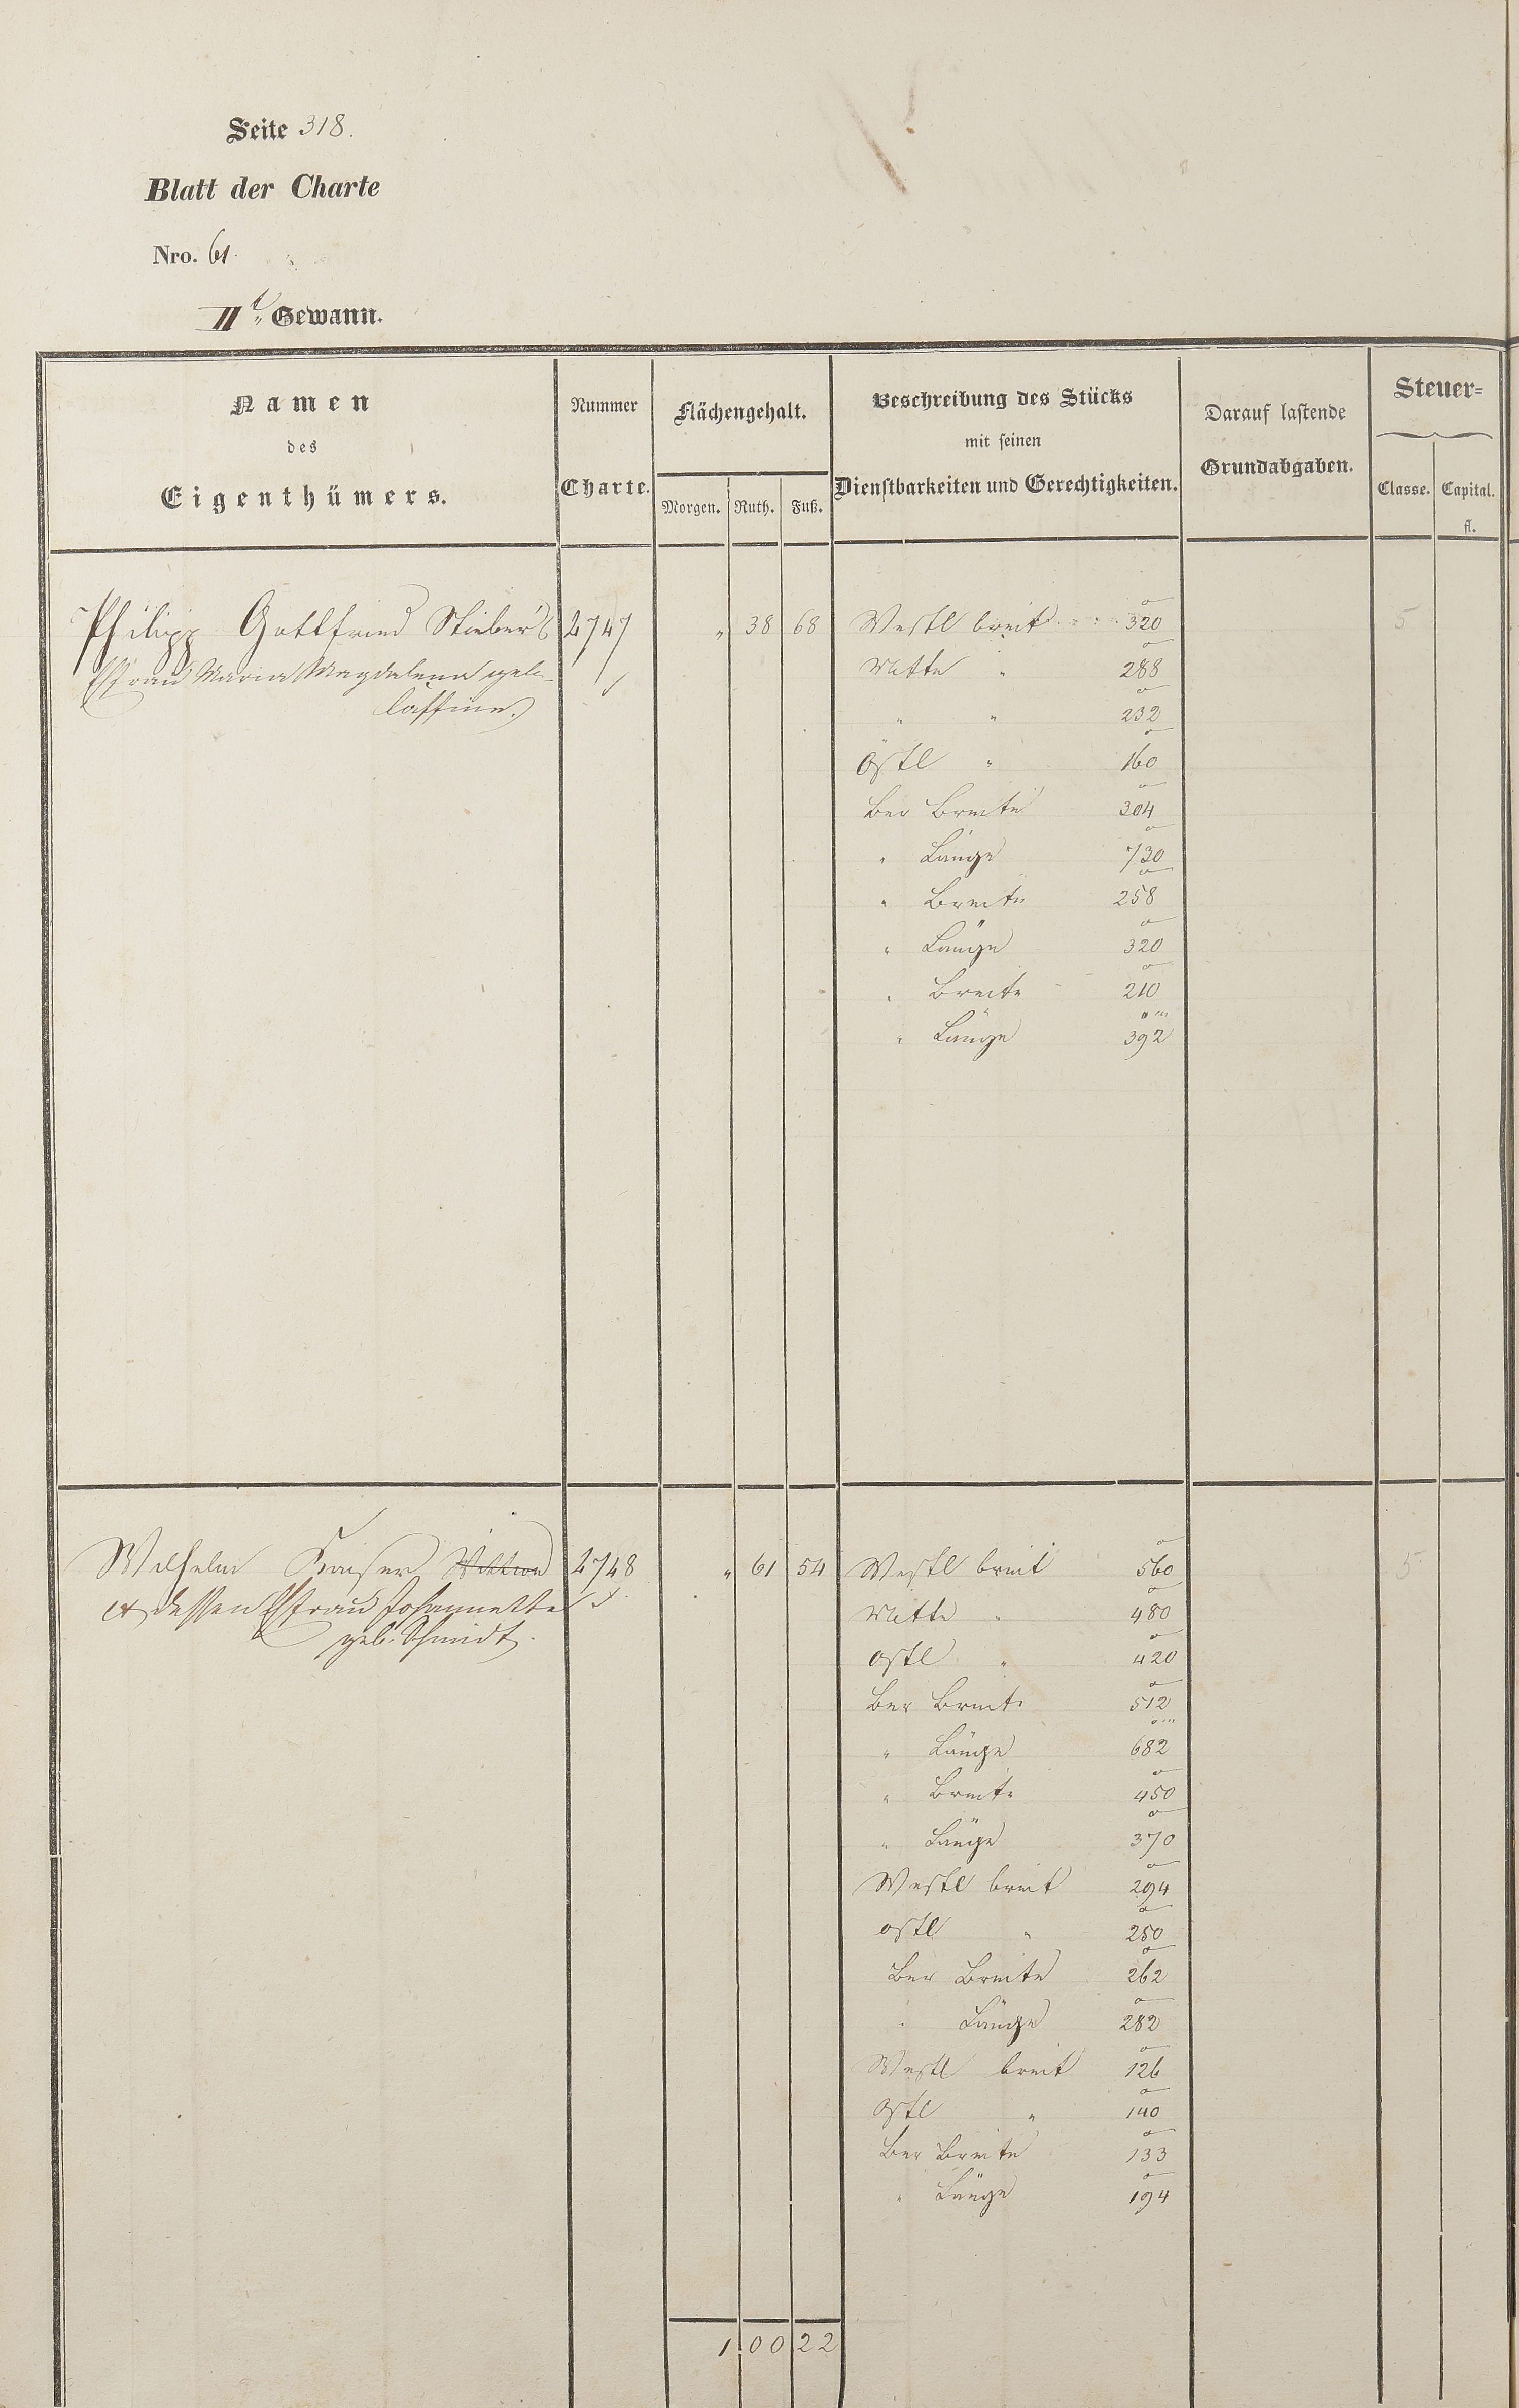 Seite 318.
Blatt der Charte
Nro. 61
IIt. Gewann.
Namen
des
Eigenthümers.
Nummer
Charte.
Flächengehalt.
Morgen. Ruth. Fuß.
Beschreibung des Stücks
mit seinen
Dienstbarkeiten und Gerechtigkeiten.
Darauf lastende
Grundabgaben.
Steuer=
Classe. Capital.
fl.
Philipp Gottfried Stieber's 2747 „ 38 68 Westl breit 320 5
Ehfrau Maria Magdalena geb. Mitte " 288
" " 232
Östl " 160
Ber Breite 304
" Länge 730
" Breite 258
" Länge 320
" Breite 210
" Länge 392
Wilhelm Kaiser 2748 „ 61 54 Westl breit 560 5
et dessen Ehfrau Johannette Mitte " 480
geb. Schmidt.
Östl " 420
Ber Breite 512
" Länge 682
" Breite 450
" Länge 370
Westl breit 294
östl " 250
Ber Breite 262
" Länge 282
Westl breit 126
Östl " 140
Ber Breite 133
" Länge 194
1 00 22